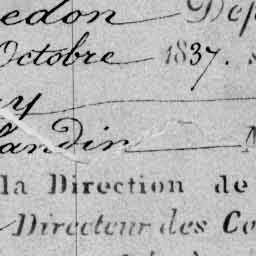 edon Dép
Octobre 1837.
y
landin
la Direction de
Directeur des Co